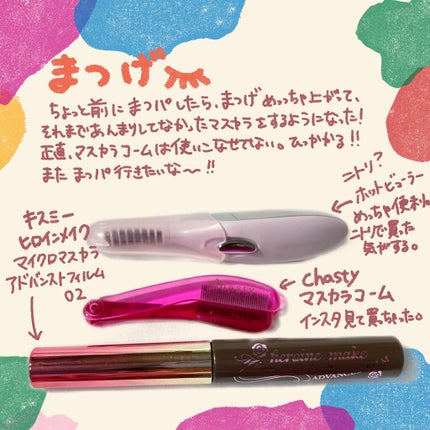 まつげ
ちょっと前にまつパしたら、まつげめっちゃ上がって、
それまであんまりしてなかったマスカラをするようになった！
正直、マスカラコームは使いこなせてない。ひっかかる！！
またまつパ行きたいな〜！！
ニトリ？
ホットビューラー
めっちゃ便利。
ニトリで買った
気がする。
キスミー
ヒロインメイク
マイクロマスカラ
アドバンストフィルム
02
Chasty
マスカラコーム
インスタ見て買っちゃった。
heroine make
ADVANCED